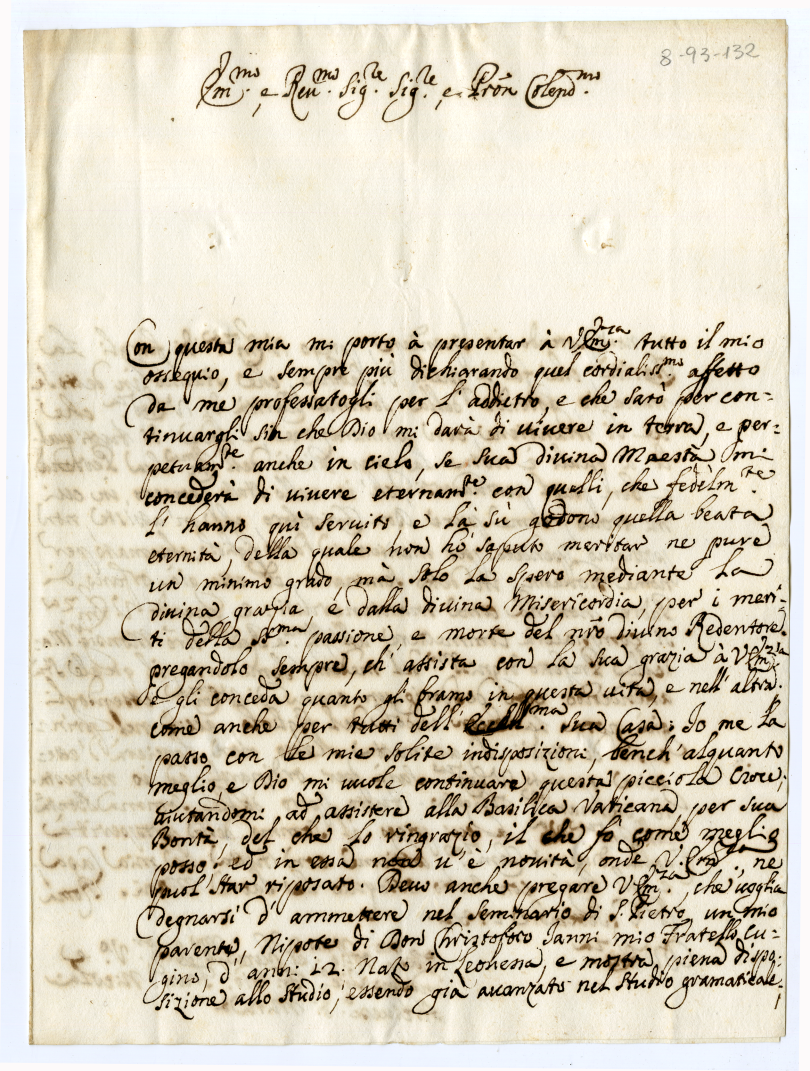 8-93-132
Ill.mo, e Reu.mo Sig.re Sig.re, e Pròn Colend.mo
Con questa mia mi porto à presentar à V.S. Ill.ma tutto il mio
ossequio, e sempre più dichiarando quel cordialiss.mo affetto
da me professatogli per l'addietro, e che sarò per con-
tinuargli sin che Dio mi darà di vivere in terra, e per-
petuam.te anche in cielo, se sua divina Maestà mi
concederà di vivere eternam.te con quelli, che fedelm.te
l'hanno quì servito, e là sù godono quella beata
eternità, della quale non hò saputo meritar ne pure
un minimo grado, mà solo la spero mediante la
divina grazia, e dalla divina Misericordia, per i meri-
ti della SS.ma passione e morte del nrò Divino Redentore.
pregandolo sempre, ch'assista con la sua grazia à V.S. Ill.ma
e gli conceda quanto gli bramo in questa vita, e nell'altra.
come anche per tutti dell' Eccell.ma Sua Casa: Io me la
passo con le mie solite indisposizioni, bench'alquanto
meglio, e Dio mi vuole continuare questa picciola Croce,
aiutandomi ad assistere alla Basilica Vaticana, per sua
Bontà, del che lo ringrazio, il che fò come meglio
posso: ed in essa non v'è novità, onde V.S. Ill.ma ne
puol'star riposato. Devo anche pregare V.S. Ill.ma, che voglia
degnarsi d'ammettere nel Seminario di S. Pietro un mio
parente, Nipote di Don Christoforo Ianni mio Fratello Cu-
gino, d'anni 12. Nato in Leonessa, e mostra piena dispo-
sizione allo studio, essendo già avanzato nel studio gramaticale,